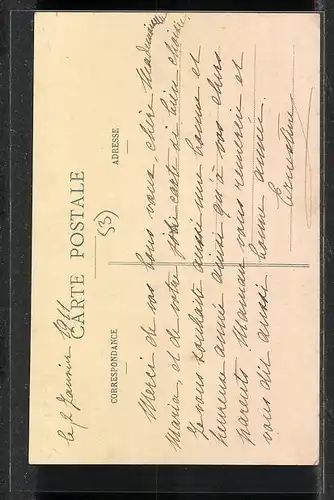 le 2 Janvier 1911
CARTE POSTALE
(53)
CORRESPONDANCE
ADRESSE
Merci de vos bons vœux, chère Mademoiselle
Maria, et de votre jolie carte si bien choisie.
Je vous souhaite aussi une bonne et
heureuse année ainsi qu'à vos chers
parents. Maman vous remercie et
vous dit aussi bonne année.
Ernestine